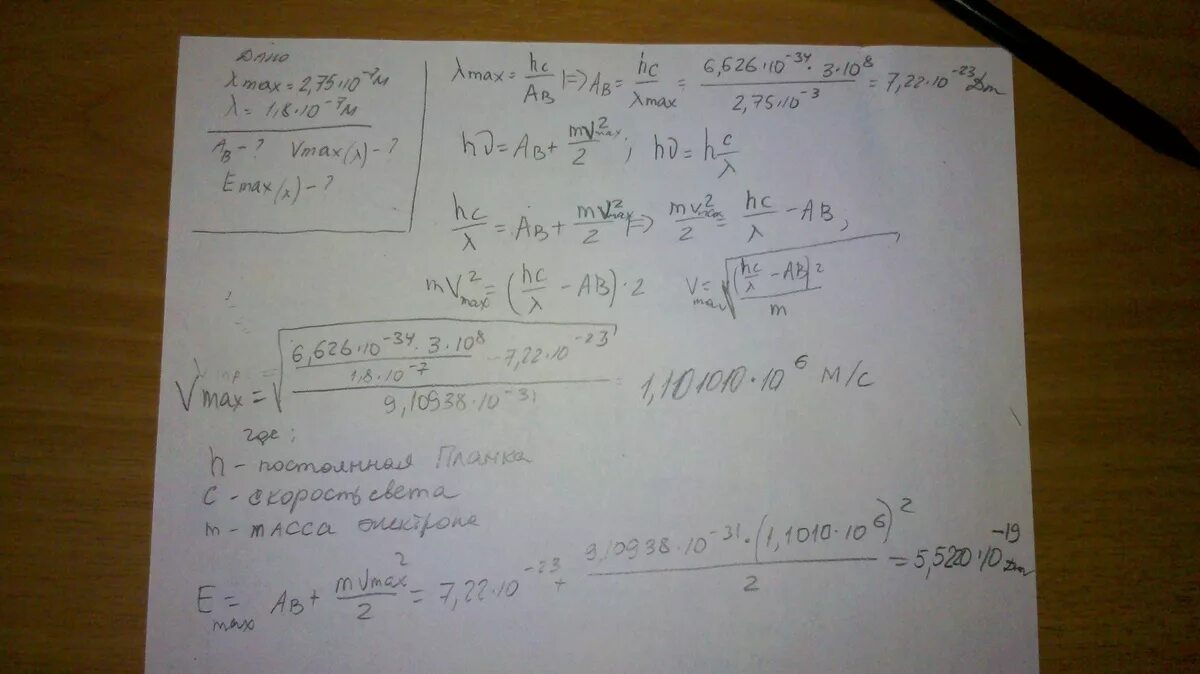 Дано
λmax = 2,75·10⁻⁷м
λ = 1,8·10⁻⁷м
Aв - ? Vmax(λ) - ?
Emax(λ) - ?
λmax = hc/Aв |=> Aв = hc/λmax = (6,626·10⁻³⁴·3·10⁸)/(2,75·10⁻³) = 7,22·10⁻²³Дж
hν = Aв + mV²max/2 ; hν = h c/λ
hc/λ = Aв + mV²max/2 |=> mV²max/2 = hc/λ - AB;
mV²max = (hc/λ - AB)·2 Vmax = √((hc/λ - AB)2/m)
Vmax = √(((6,626·10⁻³⁴·3·10⁸)/(1,8·10⁻⁷) - 7,22·10⁻²³)/(9,10938·10⁻³¹)) = 1,101010·10⁶ м/с
где:
h - постоянная Планка
c - скорость света
m - масса электрона
Emax = Aв + mVmax²/2 = 7,22·10⁻²³ + (9,10938·10⁻³¹·(1,1010·10⁶)²)/2 = 5,5220·10⁻¹⁹Дж